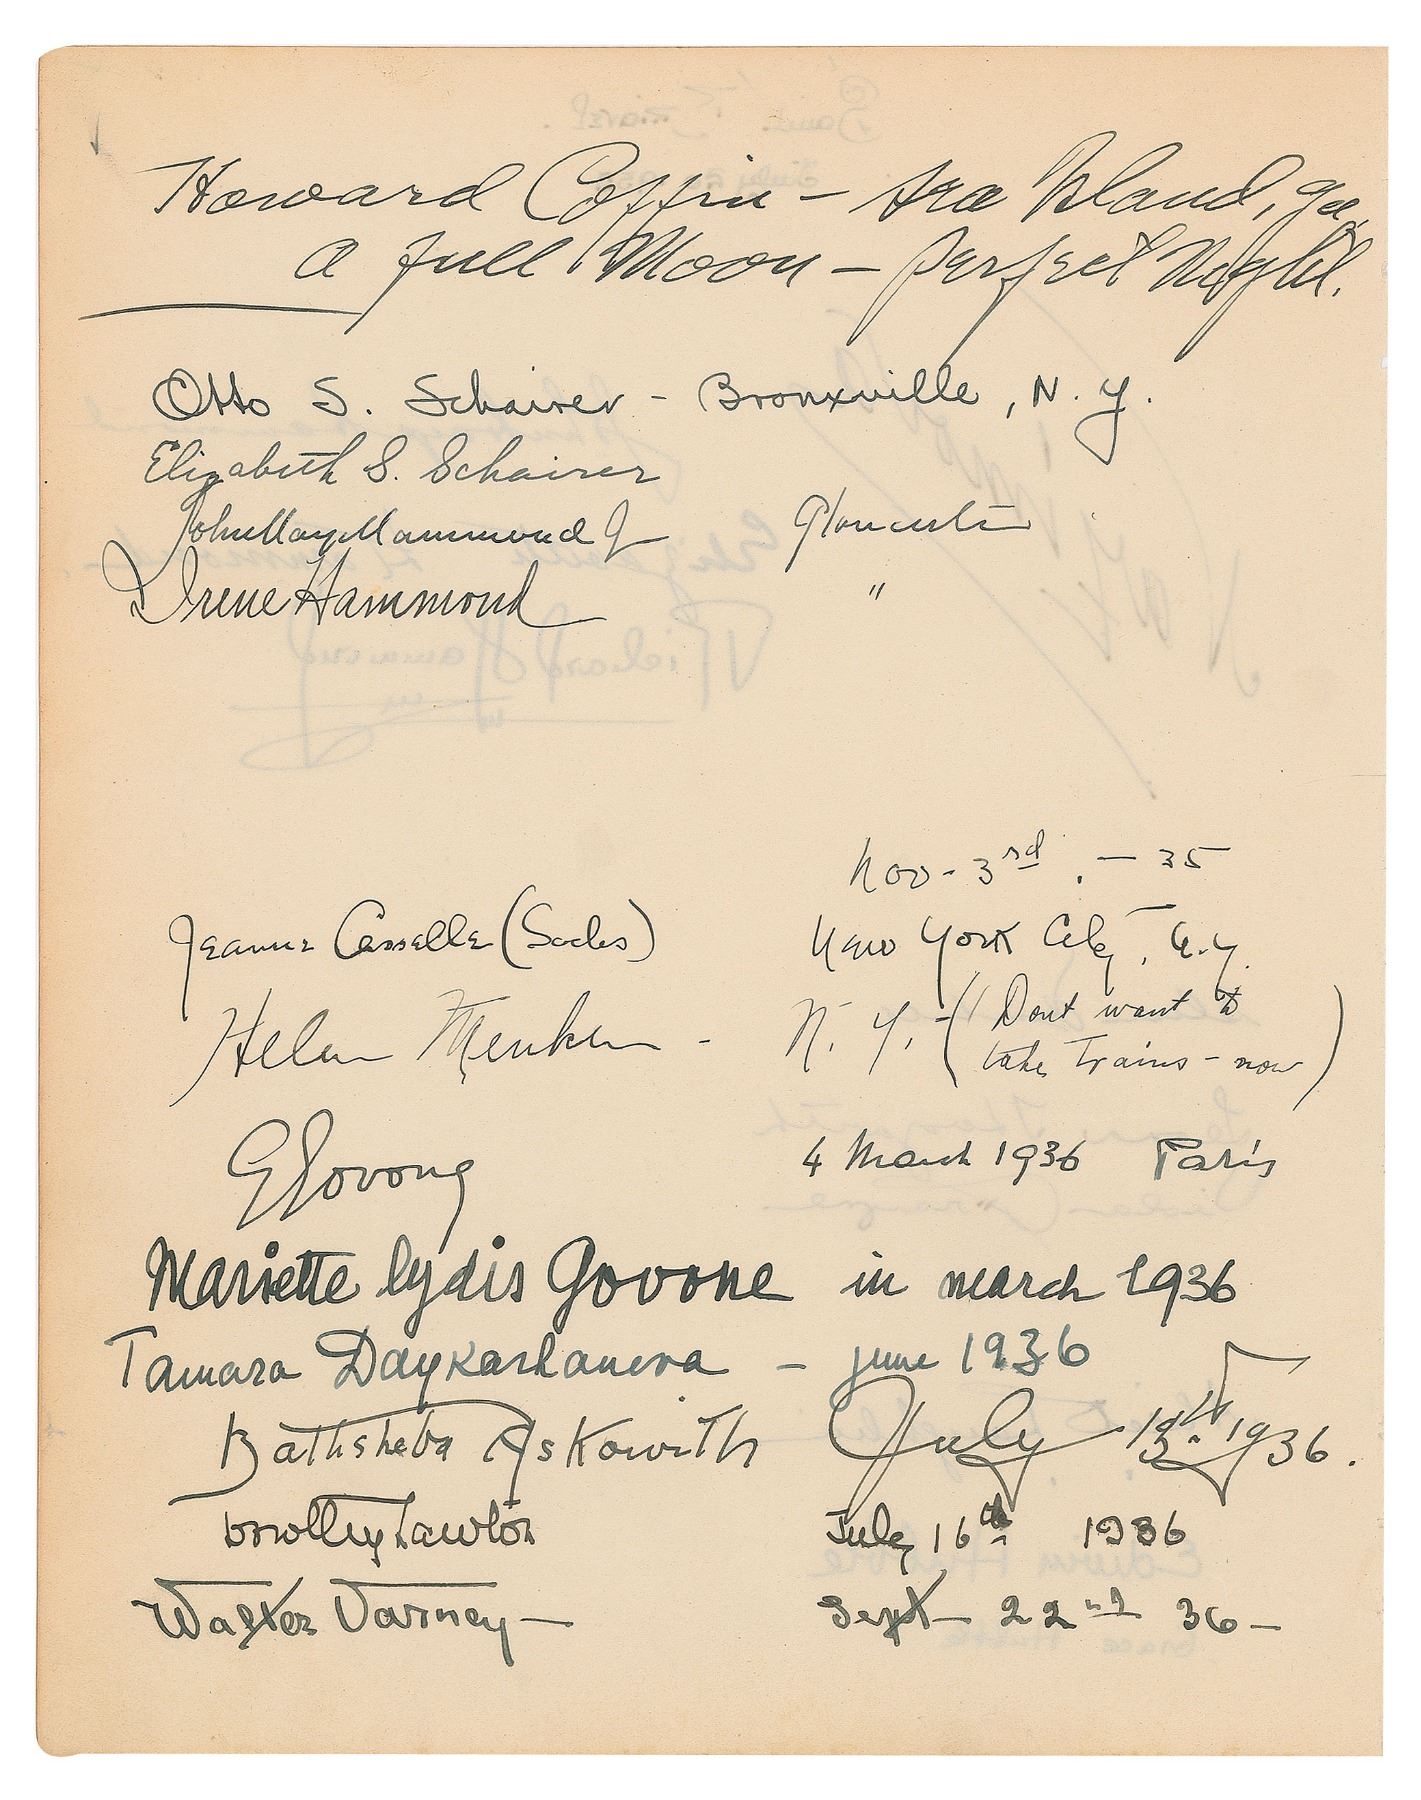 Howard Coffin – Sea Island, Ga,
A full Moon – perfect Night.
Otto S. Schairer - Bronxville, N.Y.
Elizabeth S. Schairer
John Hays Hammond Jr Gloucester
Irene Hammond "
Nov- 3rd. – 35
Jeanne Casselle (Sachs) New York City, N.Y.
Helen Menken - N.Y. - (Dont want to
take Trains - now)
GGovone 4 March 1936 Paris
Mariette Lydis Govone in march 1936
Tamara Daykarhanova – june 1936
Bathsheba Askowith July 13th 1936.
Dorothy Lawton July 16th 1936
Walter Varney – Sept – 22nd 36 –